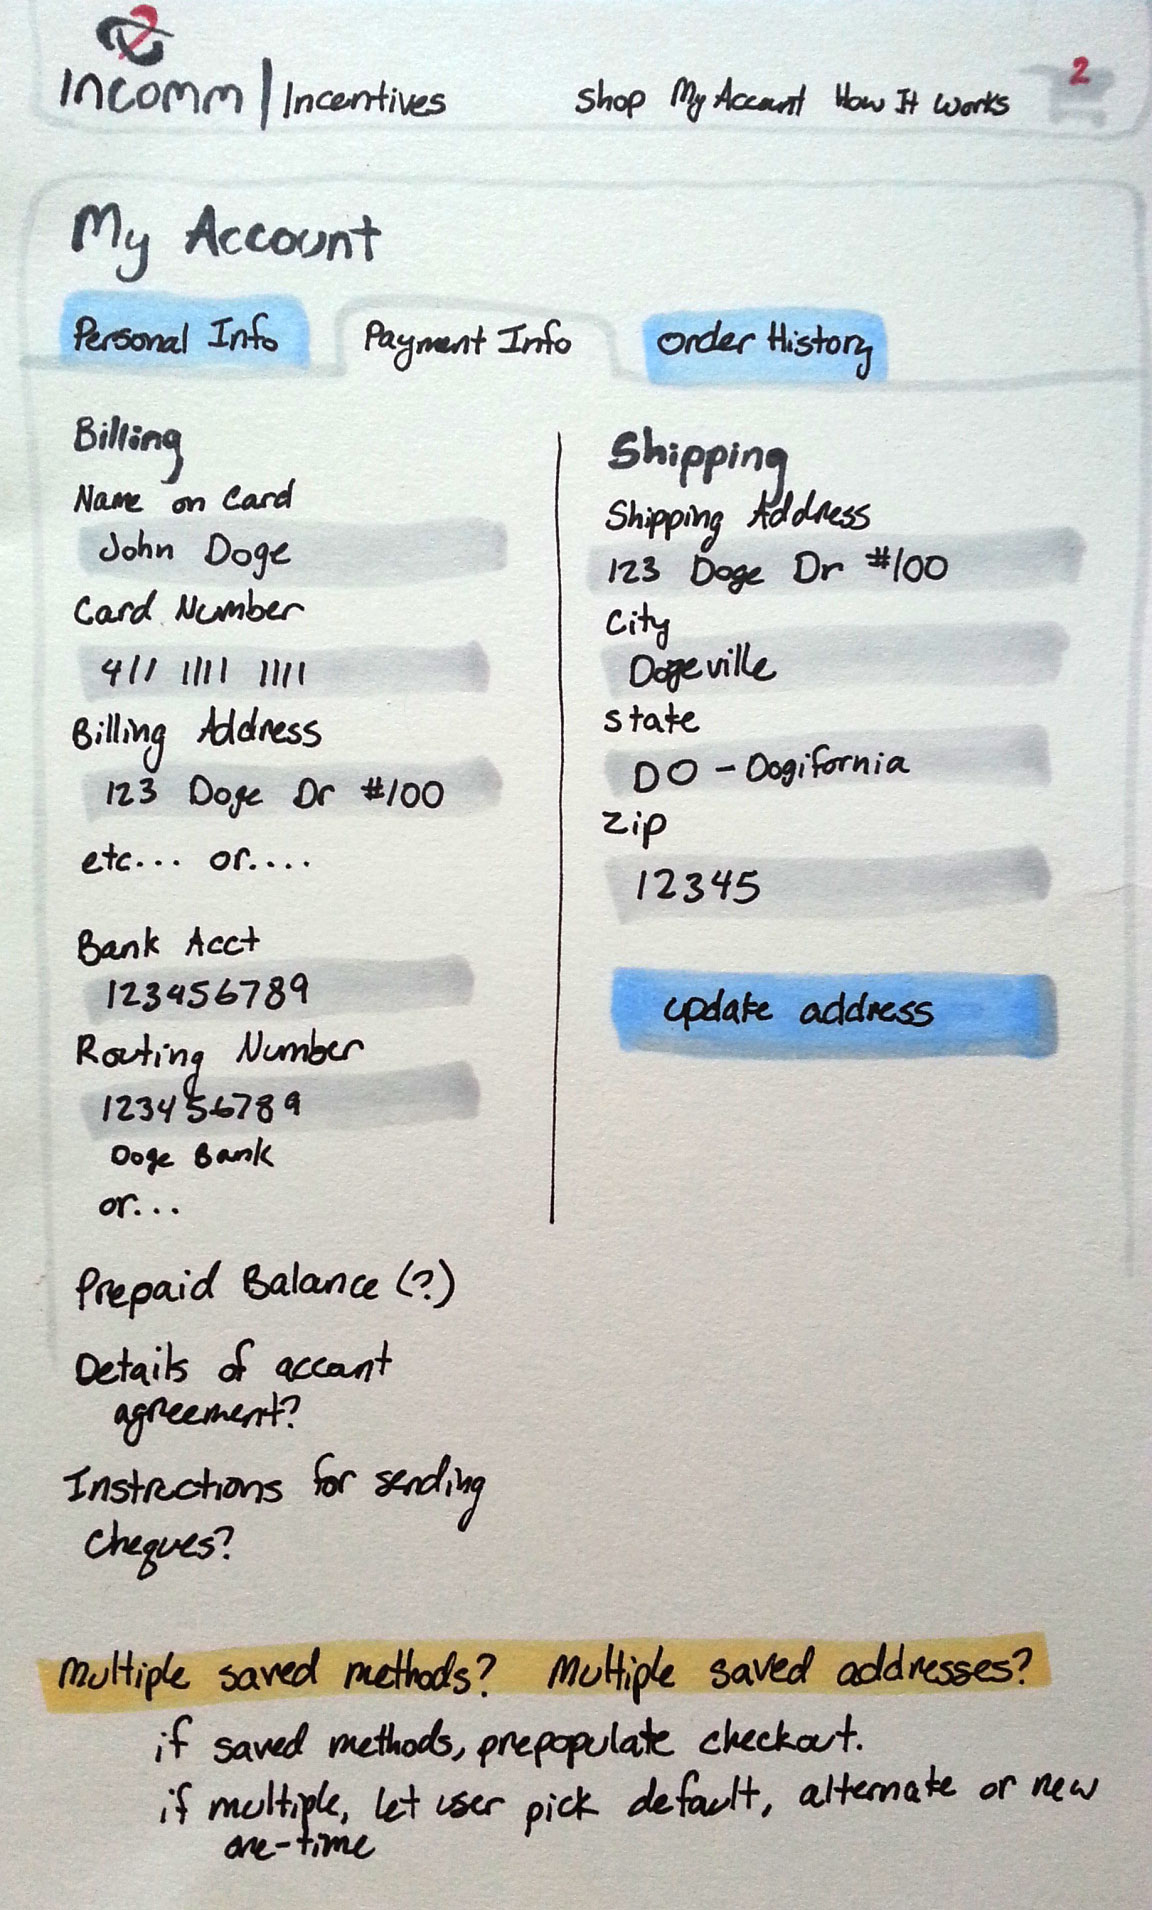 Incomm | Incentives
Shop My Account How It Works 2
My Account
Personal Info Payment Info Order History
Billing
Name on Card
John Doge
Card Number
411 1111 1111
Billing Address
123 Doge Dr #100
etc... or....
Bank Acct
123456789
Routing Number
123456789
Doge Bank
or...
Prepaid Balance (?)
Details of account
agreement?
Instructions for sending
cheques?
Shipping
Shipping Address
123 Doge Dr #100
City
Dogeville
State
DO - Dogifornia
Zip
12345
update address
Multiple saved methods? Multiple saved addresses?
if saved methods, prepopulate checkout.
if multiple, let user pick default, alternate or new
one-time